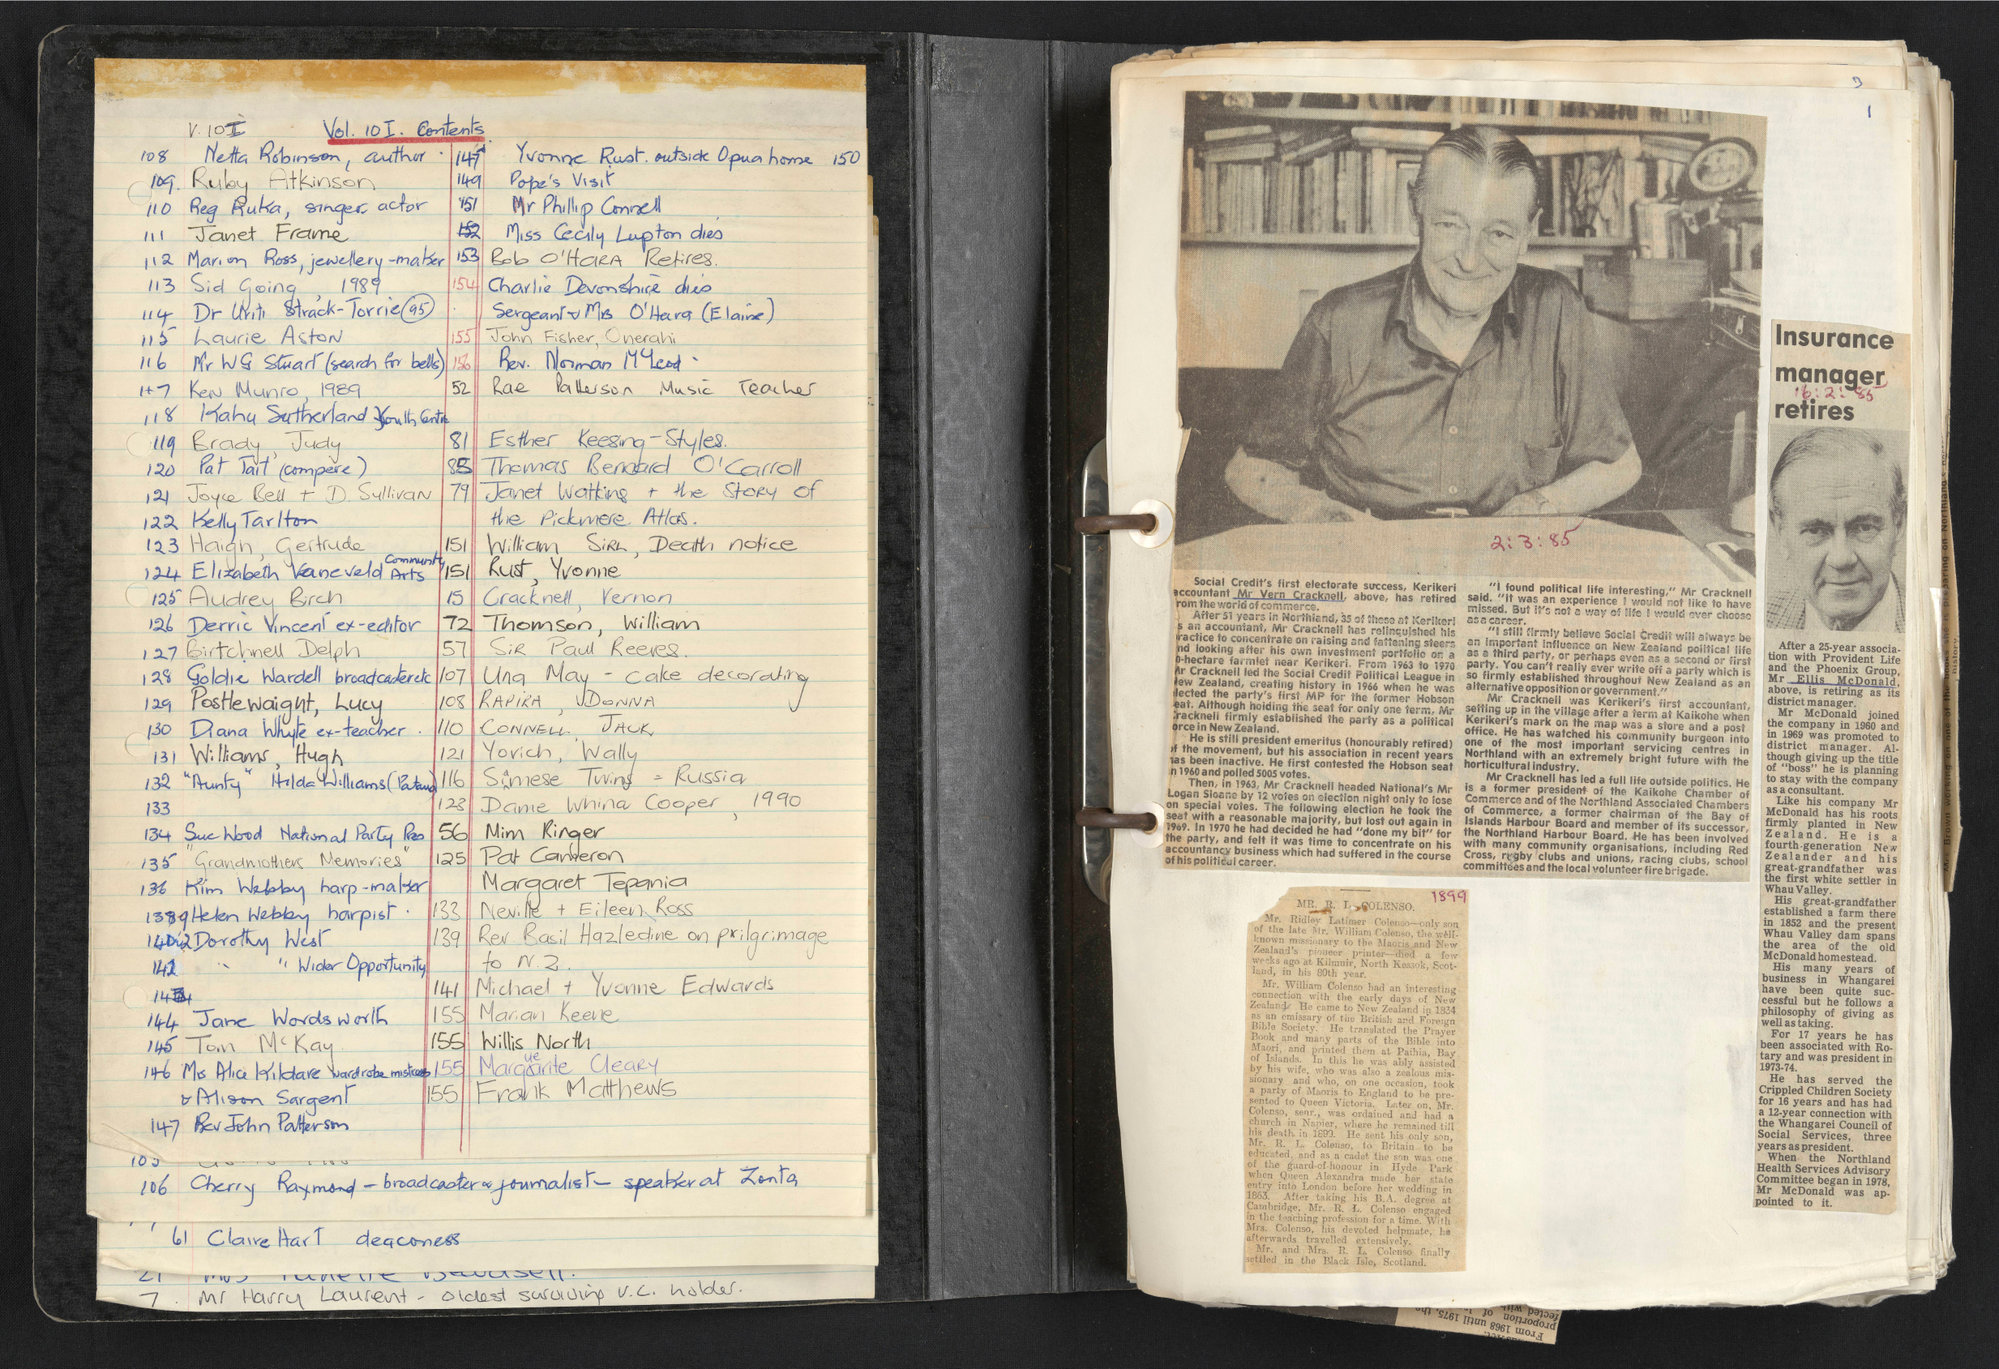 V. 10I Vol. 10 I. Contents
108 Netta Robinson, author
109. Ruby Atkinson
110 Reg Ruka, singer, actor
111 Janet Frame
112 Marion Ross, jewellery-maker
113 Sid Going, 1989
114 Dr Uriti Strack-Torrie (95)
115 Laurie Aston
116 Mr WG Stuart (search for bells)
117 Ken Munro, 1989
118 Kahu Sutherland Youth Centre
119 Brady, Judy
120 Pat Tait (compere)
121 Joyce Bell + D. Sullivan
122 Kelly Tarlton
123 Haigh, Gertrude
124 Elizabeth Vaneveld Community Arts
125 Audrey Birch
126 Derric Vincent ex-editor
127 Girtchnell Delph
128 Goldie Wardell broadcaster etc
129 Postlewaight, Lucy
130 Diana Whyte ex-teacher
131 Williams, Hugh
132 "Aunty" Hilda Williams
133
134 Sue Wood National Party Pres
135 "Grandmothers Memories"
136 Kim Webby harp-maker
139 Helen Webby harpist
Dorothy West
142 " " Wider Opportunity
144 Jane Wordsworth
145 Tom McKay
146 Ms Alice Kildare wardrobe mistress
& Alison Sargent
147 Rev John Patterson
147 Yvonne Rust. outside Opua home 150
149 Pope's Visit
151 Mr Phillip Connell
152 Miss Cecily Lupton dies
153 Bob O'HARA Retires.
154 Charlie Devonshire dies
Sergeant & Mrs O'Hara (Elaine)
155 John Fisher, Onerahi
156 Rev. Norman McLeod
52 Rae Patterson Music Teacher
81 Esther Keesing-Styles.
85 Thomas Bernard O'Carroll
79 Janet Watkins + the Story of
the Pickmere Atlas.
151 William Sirh, Death notice
151 Rust, Yvonne
15 Cracknell, Vernon
72 Thomson, William
57 Sir Paul Reeves.
107 Una May - cake decorating
108 RAPIRA, DONNA
110 CONNELL, JACK
121 Yovich, Wally
116 Siamese Twins = Russia
123 Dame Whina Cooper, 1990
56 Mim Ringer
125 Pat Cameron
Margaret Tepania
133 Neville + Eileen Ross
139 Rev. Basil Hazledine on prilgrimage
to N.Z.
141 Michael + Yvonne Edwards
155 Marian Keene
155 Willis North
155 Marguerite Cleary
155 Frank Matthews
105
106 Cherry Raymond – broadcaster & journalist – speaker at Zonta
61 Claire Hart deaconess
21 Mrs
7. Mr Harry Laurent - oldest surviving V.C. holder.
3
1
2:3:85
Social Credit's first electorate success, Kerikeri
accountant Mr Vern Cracknell, above, has retired
from the world of commerce.
After 51 years in Northland, 35 of these at Kerikeri
s an accountant, Mr Cracknell has relinquished his
ractice to concentrate on raising and fattening steers
nd looking after his own investment portfolio on a
0-hectare farmlet near Kerikeri. From 1963 to 1970
Mr Cracknell led the Social Credit Political League in
New Zealand, creating history in 1966 when he was
lected the party's first MP for the former Hobson
eat. Although holding the seat for only one term, Mr
Cracknell firmly established the party as a political
orce in New Zealand.
He is still president emeritus (honourably retired)
of the movement, but his association in recent years
has been inactive. He first contested the Hobson seat
in 1960 and polled 5005 votes.
Then, in 1963, Mr Cracknell headed National's Mr
Logan Sloane by 12 votes on election night only to lose
on special votes. The following election he took the
seat with a reasonable majority, but lost out again in
1969. In 1970 he had decided he had "done my bit" for
the party, and felt it was time to concentrate on his
accountancy business which had suffered in the course
of his political career.
"I found political life interesting," Mr Cracknell
said. "It was an experience I would not like to have
missed. But it's not a way of life I would ever choose
as a career.
"I still firmly believe Social Credit will always be
an important influence on New Zealand political life
as a third party, or perhaps even as a second or first
party. You can't really ever write off a party which is
so firmly established throughout New Zealand as an
alternative opposition or government."
Mr Cracknell was Kerikeri's first accountant,
setting up in the village after a term at Kaikohe when
Kerikeri's mark on the map was a store and a post
office. He has watched his community burgeon into
one of the most important servicing centres in
Northland with an extremely bright future with the
horticultural industry.
Mr Cracknell has led a full life outside politics. He
is a former president of the Kaikohe Chamber of
Commerce and of the Northland Associated Chambers
of Commerce, a former chairman of the Bay of
Islands Harbour Board and member of its successor,
the Northland Harbour Board. He has been involved
with many community organisations, including Red
Cross, rugby clubs and unions, racing clubs, school
committees and the local volunteer fire brigade.
Insurance
manager
16:2:85
retires
After a 25-year associa-
tion with Provident Life
and the Phoenix Group,
Mr Ellis McDonald,
above, is retiring as its
district manager.
Mr McDonald joined
the company in 1960 and
in 1969 was promoted to
district manager. Al-
though giving up the title
of "boss" he is planning
to stay with the company
as a consultant.
Like his company Mr
McDonald has his roots
firmly planted in New
Zealand. He is a
fourth-generation New
Zealander and his
great-grandfather was
the first white settler in
Whau Valley.
His great-grandfather
established a farm there
in 1852 and the present
Whau Valley dam spans
the area of the old
McDonald homestead.
His many years of
business in Whangarei
have been quite suc-
cessful but he follows a
philosophy of giving as
well as taking.
For 17 years he has
been associated with Ro-
tary and was president in
1973-74.
He has served the
Crippled Children Society
for 16 years and has had
a 12-year connection with
the Whangarei Council of
Social Services, three
years as president.
When the Northland
Health Services Advisory
Committee began in 1978,
Mr McDonald was ap-
pointed to it.
1899
MR. R. L. COLENSO.
Mr. Ridley Latimer Colenso—only son
of the late Mr. William Colenso, the well-
known missionary to the Maoris and New
Zealand's pioneer printer—died a few
weeks ago at Kilmuir, North Kessok, Scot-
land, in his 80th year.
Mr. William Colenso had an interesting
connection with the early days of New
Zealand. He came to New Zealand in 1834
as an emissary of the British and Foreign
Bible Society. He translated the Prayer
Book and many parts of the Bible into
Maori, and printed them at Paihia, Bay
of Islands. In this he was ably assisted
by his wife, who was also a zealous mis-
sionary and who, on one occasion, took
a party of Maoris to England to be pre-
sented to Queen Victoria. Later on, Mr.
Colenso, senr., was ordained and had a
church in Napier, where he remained till
his death in 1899. He sent his only son,
Mr. R. L. Colenso, to Britain to be
educated, and as a cadet the son was one
of the guard-of-honour in Hyde Park
when Queen Alexandra made her state
entry into London before her wedding in
1863. After taking his B.A. degree at
Cambridge, Mr. R. L. Colenso engaged
in the teaching profession for a time. With
Mrs. Colenso, his devoted helpmate, he
afterwards travelled extensively.
Mr. and Mrs. R. L. Colenso finally
settled in the Black Isle, Scotland.
From 1968 until 1975, the
proportion of
fected with